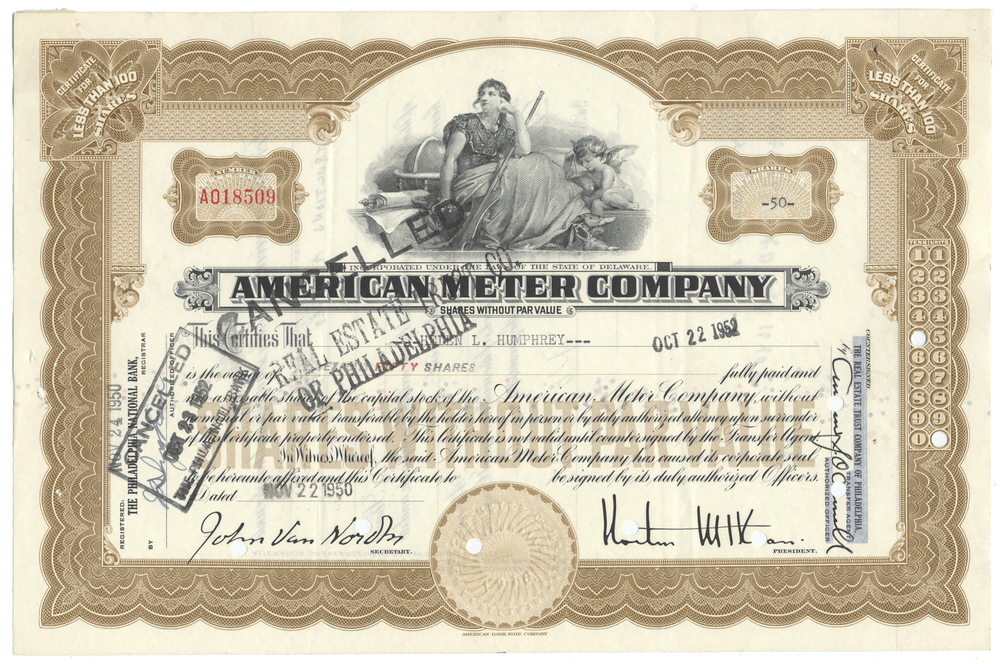 CERTIFICATE
FOR
LESS THAN 100
SHARES
CERTIFICATE
FOR
LESS THAN 100
SHARES
NUMBER
A018509
SHARES
-50-
INCORPORATED UNDER THE LAWS OF THE STATE OF DELAWARE.
AMERICAN METER COMPANY
SHARES WITHOUT PAR VALUE
CANCELLED
REAL ESTATE TRUST CO.
OF PHILADELPHIA
This Certifies That
L. HUMPHREY---
OCT 22 1952
is the owner of
FIFTY SHARES
fully paid and
non-assessable shares of the capital stock of the American Meter Company, without
nominal or par value transferable by the holder hereof in person or by duly authorized attorney upon surrender
of this Certificate properly endorsed. This Certificate is not valid until countersigned by the Transfer Agent
In Witness Whereof, the said American Meter Company has caused its corporate seal
to be hereunto affixed and this Certificate to be signed by its duly authorized Officers.
Dated
NOV 22 1950
SHARES WITHOUT PAR VALUE
John Van Norden
SECRETARY.
PRESIDENT.
REGISTERED:
NOV 24 1950
THE PHILADELPHIA NATIONAL BANK,
REGISTRAR
BY
AUTHORIZED OFFICER
CANCELLED
OCT 23 1952
THE PHILADELPHIA NATIONAL BANK
COUNTERSIGNED
THE REAL ESTATE TRUST COMPANY OF PHILADELPHIA,
TRANSFER AGENT
by
AUTHORIZED OFFICER
TENS UNITS
1 1
2 2
3 3
4 4
5
6 6
7 7
8 8
9 9
0
AMERICAN BANK NOTE COMPANY